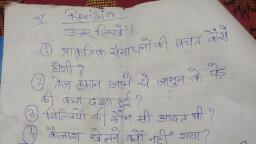 V
उत्तर लिखें।
① प्राकृतिक संसाधनों की बचत कैसे
होगी?
② तेज तूफान आने से जामुन के पेड़
की क्या दशा हुई?
③ बिल्लियों की कौन सी आदत थी?
④ कैलाश खेलने क्यों नहीं गया?